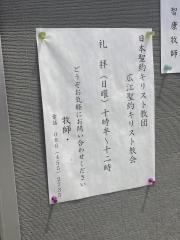 日本聖約キリスト教団
広江聖約キリスト教会
礼 拝 (日曜) 十時半〜十二時
どうぞお気軽にお問い合わせください
牧師・
電話 086(455)
智康牧師